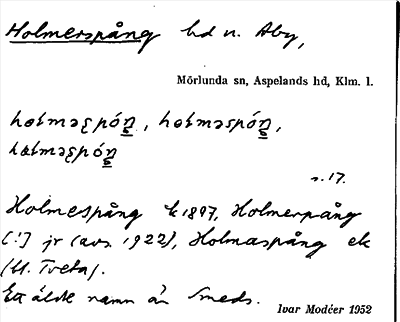 Holmerspång hd n. Aby,
Mörlunda sn, Aspelands hd, Klm. l.
hɷlməʂpóŋ̲, hɷlməspóŋ̲,
hɷlməʂpóŋ̲
s. 17.
Holmespång k 1897, Holmerpång
[!] jr (avs. 1922), Holmaspång ek
(U. Tveta).
Ett äldr namn är Smeds.
Ivar Modéer 1952